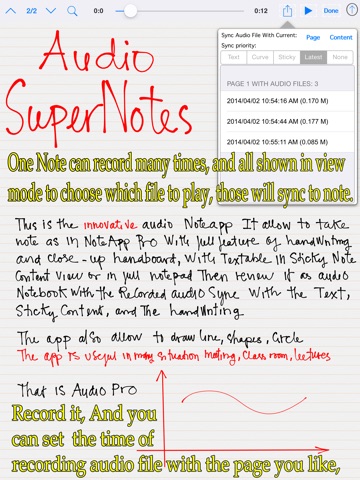 2/2 0:0 0:12 Done
Sync Audio File With Current: Page Content
Sync priority:
Text Curve Sticky Latest None
PAGE 1 WITH AUDIO FILES: 3
2014/04/02 10:54:16 AM (0.170 M)
2014/04/02 10:54:44 AM (0.177 M)
2014/04/02 10:55:11 AM (0.085 M)
Audio
SuperNotes
One Note can record many times, and all shown in view
mode to choose which file to play, those will sync to note.
This is the innovative audio Noteapp It allow to take
note as in NoteApp Pro With full feature of handWriting
and close-up handboard, With Textable in Sticky Note
Content View or in full notepad Then review it as audio
Notebook With the Recorded audio Sync With the Text,
Sticky Content, and The handWriting
The app also allow to draw line, shapes, Circle
The app is useful in many situation meeting, Class room, lectures
That is Audio Pro
Record it, And you
can set the time of
recording audio file with the page you like,